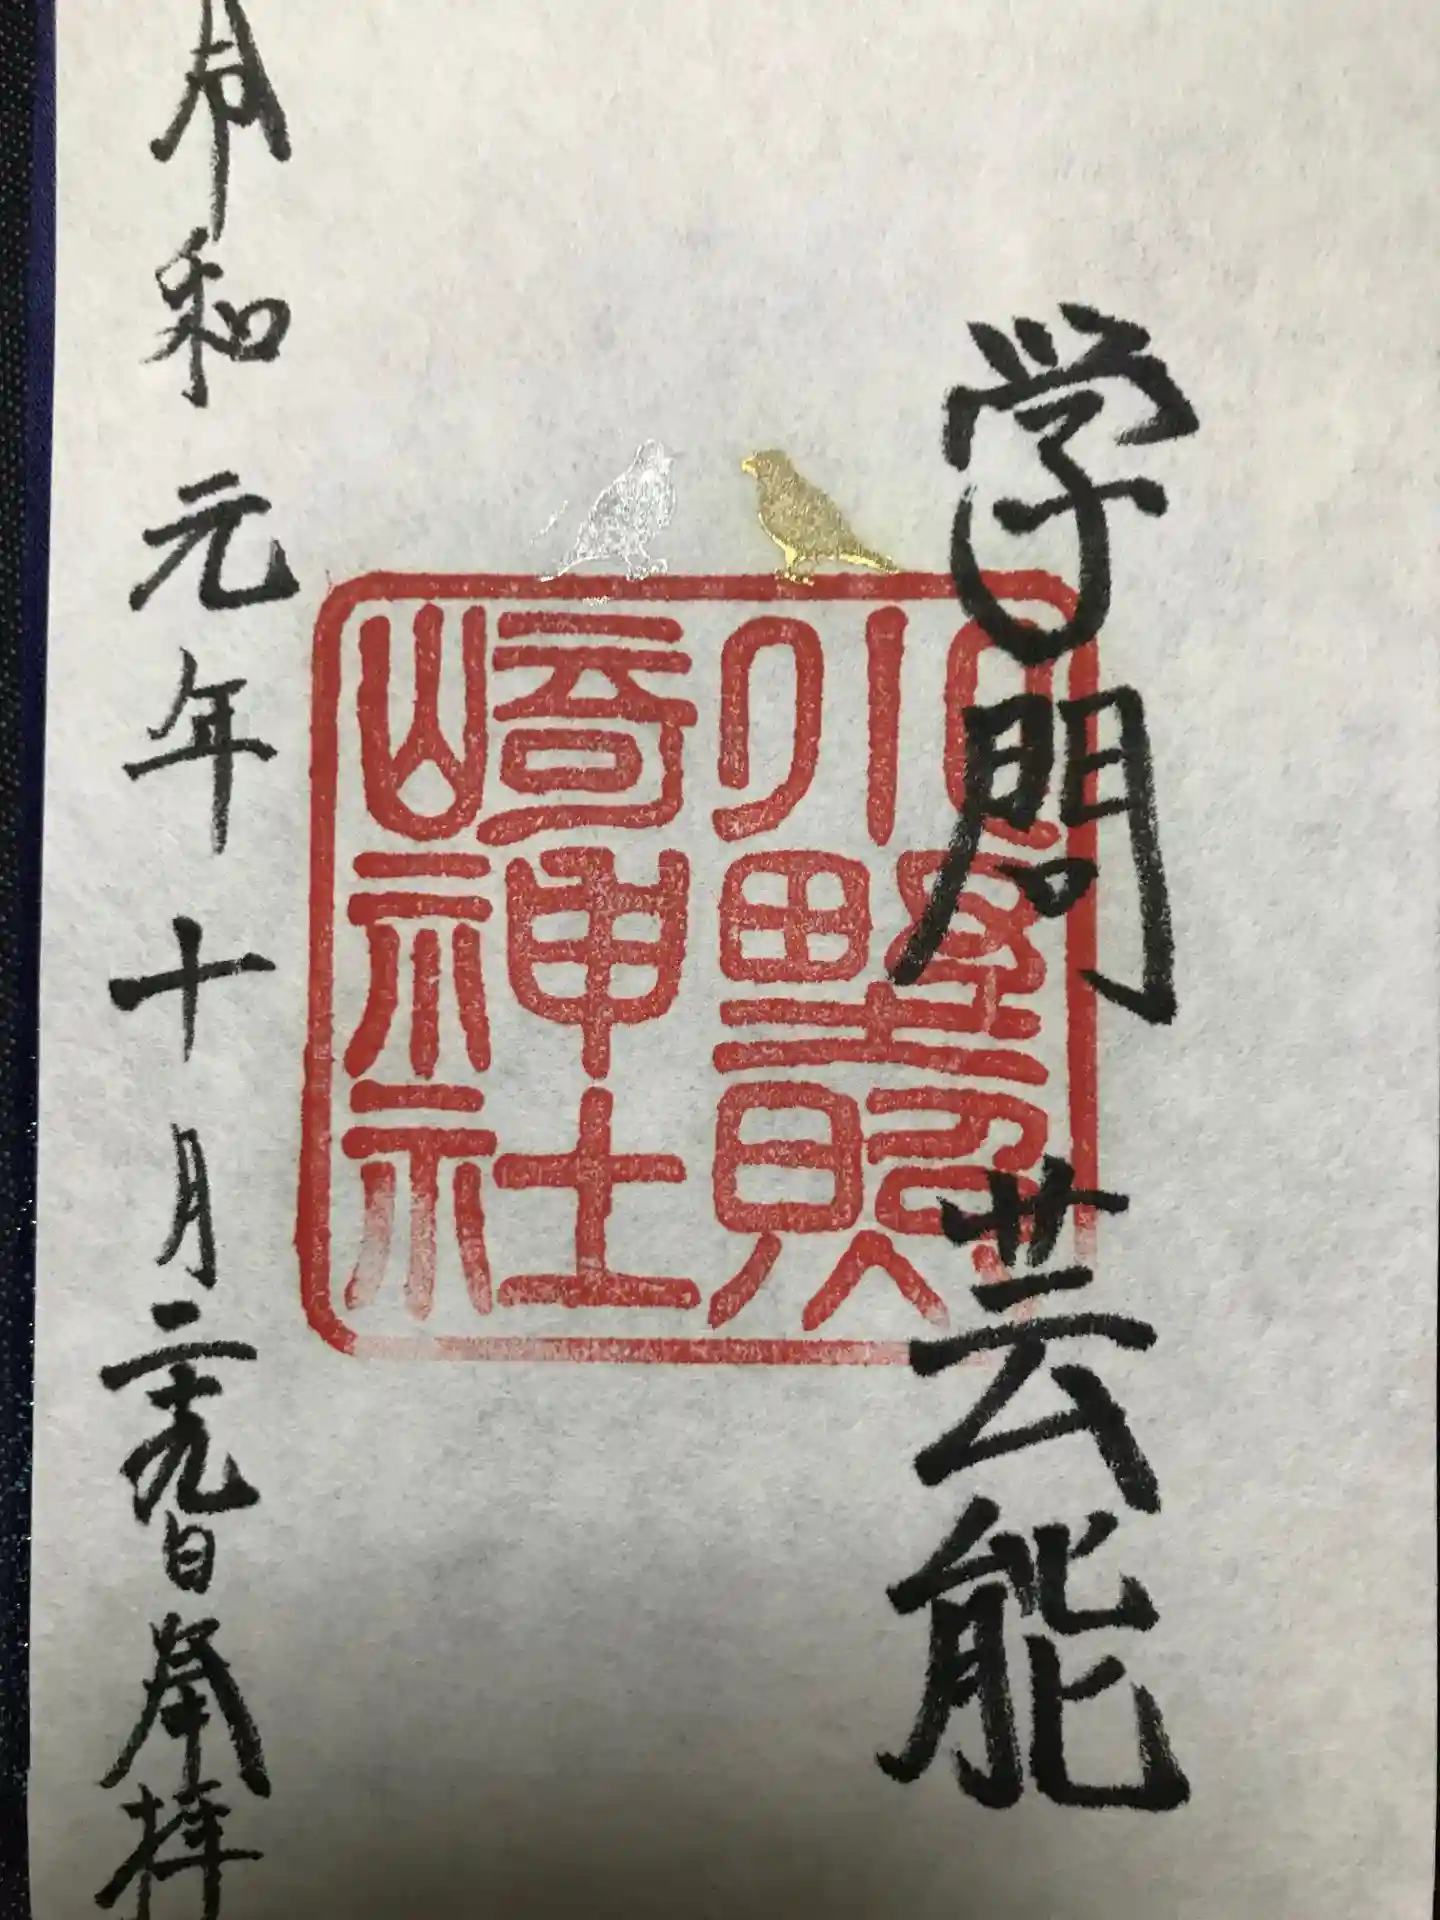 学問 芸能
小野照
崎神社
令和元年十月二十九日 奉拝